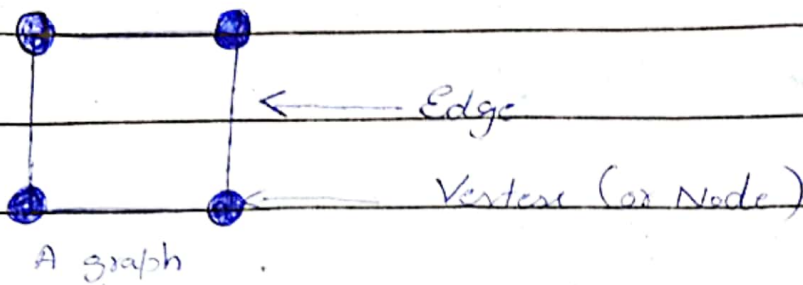 Edge
Vertex (or Node)
A graph